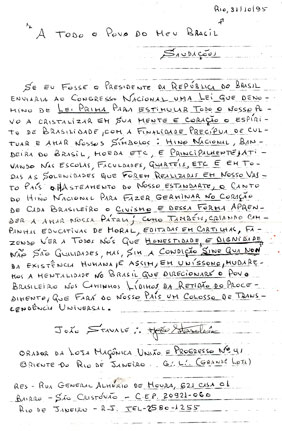 Rio, 31/10/95
"A TODO O POVO DO MEU BRASIL"
SAUDAÇÕES
SE EU FOSSE O PRESIDENTE DA REPÚBLICA DO BRASIL
ENVIARIA AO CONGRESSO NACIONAL UMA LEI, QUE DENO-
MINO DE LEI PRIMA PARA ESTIMULAR TODO O NOSSO PO-
VO A CRISTALIZAR EM SUA MENTE E CORAÇÃO O ESPÍRI-
TO DE BRASILIDADE, COM A FINALIDADE PRECÍPUA DE CUL-
TUAR E AMAR NOSSOS SÍMBOLOS: HINO NACIONAL, BAN-
DEIRA DO BRASIL, MOEDA ETC., E PRINCIPALMENTE, ATI-
VANDO NAS ESCOLAS, FACULDADES, QUARTÉIS, ETC E EM TO-
DAS AS SOLENIDADES QUE FOREM REALIZADAS EM NOSSO VAS-
TO PAÍS O HASTEAMENTO DO NOSSO ESTANDARTE, O CANTO
DO HINO NACIONAL PARA FAZER GERMINAR NO CORAÇÃO
DE CADA BRASILEIRO O CIVISMO E DESSA FORMA APREN-
DER A AMAR NOSSA PÁTRIA; COMO TAMBÉM, CRIANDO CAM-
PANHAS EDUCATIVAS DE MORAL, EDITADAS EM CARTILHAS, FA-
ZENDO VER A TODOS NÓS QUE HONESTIDADE E DIGNIDADE,
NÃO SÃO QUALIDADES, MAS, SIM A CONDIÇÃO SINE QUA NON
DA EXISTÊNCIA HUMANA, E ASSIM, EM UNÍSSONO, MUDARE-
MOS A MENTALIDADE NO BRASIL QUE DIRECIONARÁ O POVO
BRASILEIRO NOS CAMINHOS LÍDIMOS DA RETIDÃO DO PROCE-
DIMENTO, QUE FARÁ DO NOSSO PAÍS UM COLOSSO DE TRANS-
CENDÊNCIA UNIVERSAL.
JOÃO STAVALE
ORADOR DA LOJA MAÇÔNICA UNIÃO E PROGRESSO Nº 41
ORIENTE DO RIO DE JANEIRO G∴L∴ (GRANDE LOJA)
RES - RUA GENERAL ALMÉRIO DE MOURA, 621 CASA 01
BAIRRO - SÃO CRISTÓVÃO - C.E.P. 20921-060
RIO DE JANEIRO - R.J. TEL-2580-1255